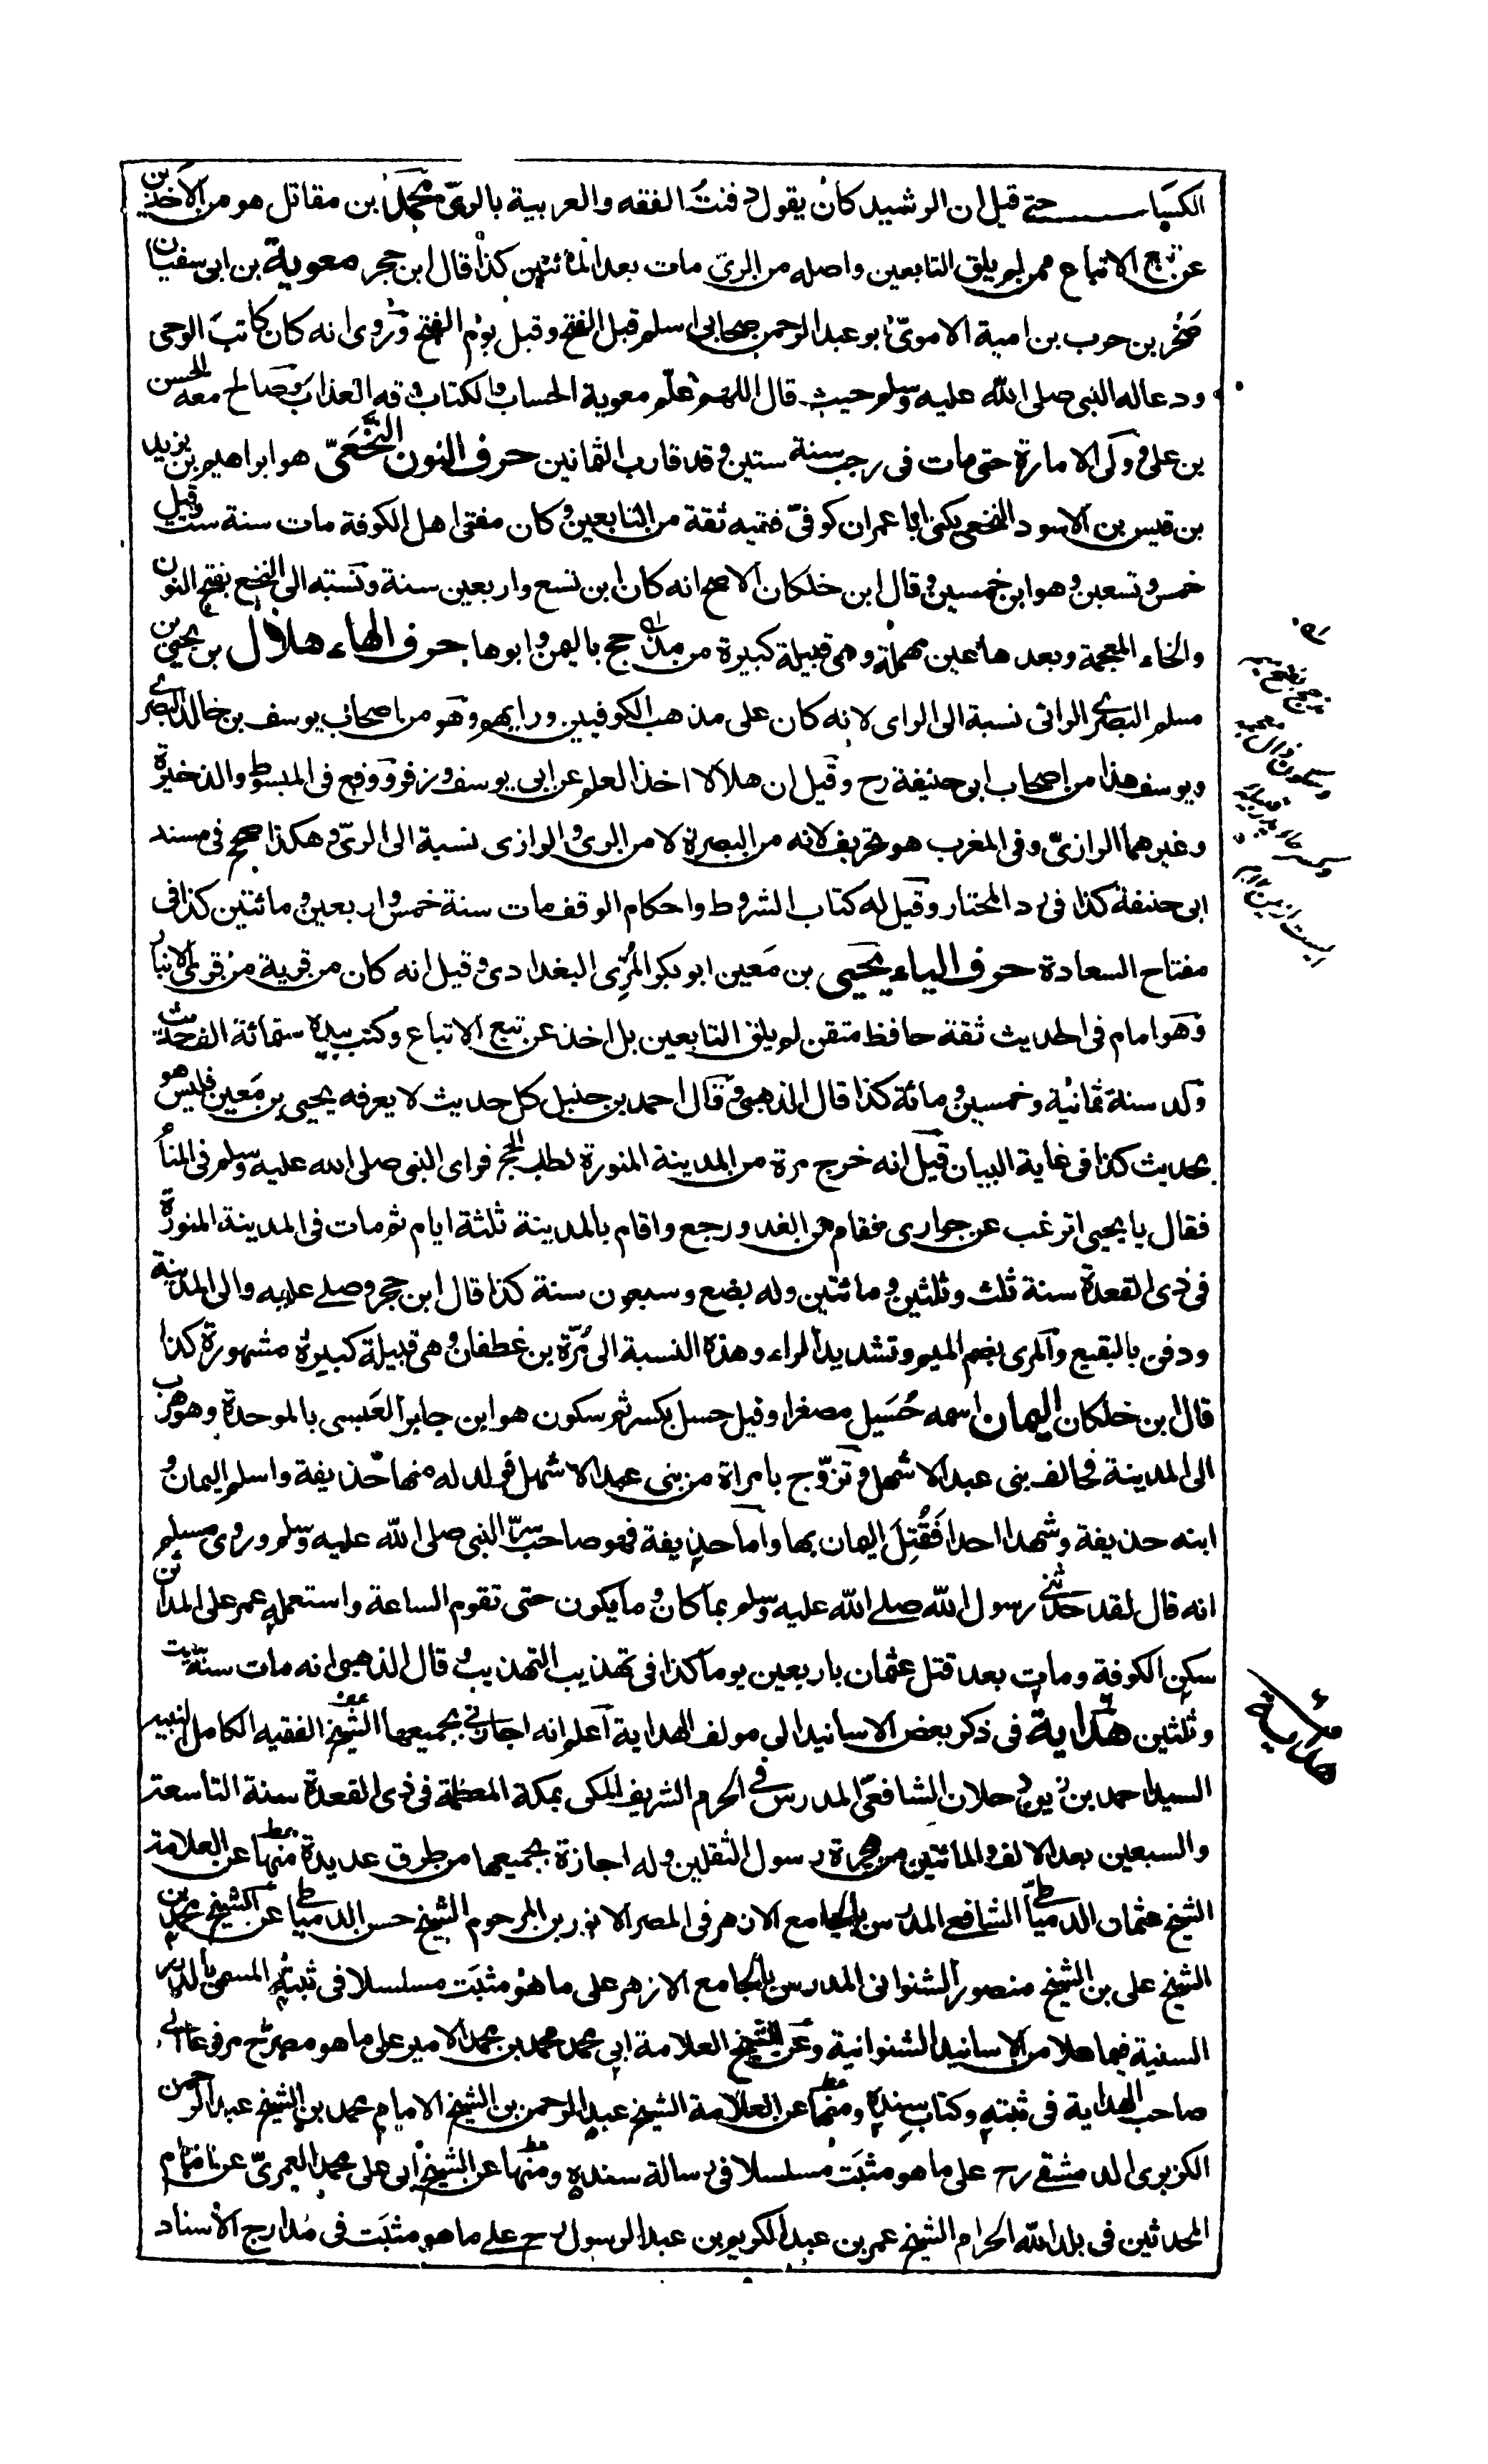 الكسيا حتے قيل ان الرشيد كان يقول دفنتُ الفقه والعربية بالريّ محمد بن مقاتل هو من الآخذين
عن تبع الاتباع ممن لم يلق التابعين واصله من الريّ مات بعد المائتين كذا قال ابن حجر معوية بن ابى سفيان
صَخْر بن حرب بن امية الاموىّ ابو عبد الرحمن صحابى اسلم قبل الفتح وقيل يوم الفتح وروى انه كان كاتبَ الوحى
ودعا له النبى صلى الله عليه وسلم حيث قال اللهم علّم معوية الحساب والكتاب وقه العذاب وصالح معه الحسن
بن على وولى الامارة حتى مات فى رجب سنة ستين وقد قارب الثمانين حرف النون النَّخَعىّ هو ابراهيم بن يزيد
بن قيس بن الاسود النخعى يكنى ابا عمران كوفىّ فقيه ثقة من التابعين وكان مفتى اهل الكوفة مات سنة ست وقيل
خمس وتسعين وهو ابن خمسين وقال ابن خلكان الاصح انه كان ابن تسع واربعين سنة ونسبته الى النخع بفتح النون
والخاء المعجمة وبعدها عين مهملة وهى قبيلة كبيرة من مذحج باليمن وابوها حرف الهاء هلال بن يحيى بن
مسلم البصرى الرائى نسبة الى الراى لانه كان على مذهب الكوفيين ورايهم وهو من اصحاب يوسف بن خالد البصرے
ويوسف هذا من اصحاب ابى حنيفة رح وقيل ان هلالا اخذ العلم عن ابى يوسف وزفر ووقع فى المبسوط والذخيرة
وغيرهما الرازىّ وفى المغرب هو تحريف لانه من البصرة لا من الرى والرازى نسبة الى الرىّ وهكذا صحح فى مسند
ابى حنيفة كذا فى رد المحتار وقيل له كتاب الشروط واحكام الوقف مات سنة خمس واربعين ومائتين كذا فى
مفتاح السعادة حرف الياء يحيى بن مَعين ابو بكر المُرِّى البغدادى وقيل انه كان من قرية من قرى الانبار
وهو امام فى الحديث ثقة حافظ متقن لم يلق التابعين بل اخذ عن تبع الاتباع وكتب بيده ستمائة الف حديث
ولد سنة ثمانية وخمسين ومائة كذا قال الذهبى وقال احمد بن حنبل كل حديث لا يعرفه يحيى بن مَعين فليس هو
بحديث كذا فى غاية البيان قيل انه خرج مرة من المدينة المنورة لطلب الحج فراى النبى صلى الله عليه وسلم فى المنام
فقال يا يحيى اترغب عن جوارى فقام من الغد ورجع واقام بالمدينة ثلثة ايام ثم مات فى المدينة المنورة
فى ذى القعدة سنة ثلث وثلثين ومائتين وله بضع وسبعون سنة كذا قال ابن حجر وصلے عليه والى المدينة
ودفن بالبقيع والمرى بضم الميم وتشديد الراء وهذه النسبة الى مُرّة بن غطفان وهى قبيلة كبيرة مشهورة كذا
قال ابن خلكان اليمان اسمه حُسَيل مصغرا وقيل حسل بكسر ثم سكون هو ابن جابر العَبسى بالموحدة وهو هرب
الى المدينة فحالف بنى عبد الاشهل وتزوّج بامراة من بنى عبد الاشهل فولد له منها حذيفة واسلم اليمان و
ابنه حذيفة وشهدا احدا فَقُتِلَ اليمان بها واما حذيفة فهو صاحب سرّ النبى صلى الله عليه وسلم وروى مسلم
انه قال لقد حدثنى رسول الله صلے الله عليه وسلم بما كان وما يكون حتى تقوم الساعة واستعمله عمر على المدائن
سكن الكوفة ومات بعد قتل عثمان باربعين يوما كذا فى تهذيب التهذيب وقال الذهبى انه مات سنة ست
وثلثين هداية فى ذكر بعض الاسانيد الى مولف الهداية اعلم انه اجازنى بجميعها الشيخ الفقيه الكامل النبيه
السيد احمد بن زين دحلان الشافعىّ المدرس فى الحرم الشريف المكى بمكة المعظمة فى ذى القعدة سنة التاسعة
والسبعين بعد الالف والمائتين من هجرة رسول الثقلين وله اجازة بجميعها من طرق عديدة منها عن العلامة
الشيخ عثمان الدمياطى الشافعى المدرس بالجامع الازهر فى المصر الانور بن المرحوم الشيخ حسن الدمياطى عن الشيخ محمد بن
الشيخ على بن الشيخ منصور الشنوانى المدرس بالجامع الازهر على ما هو مثبَت مسلسلا فى ثبته المسمى بالدرر
السنية فيما علا من الاسانيد الشنوانية وعن الشيخ العلامة ابى محمد محمد بن محمد الامير على ما هو مصرّح مرفوعا الے
صاحب الهداية فى ثبته وكتاب سنده ومنها عن العلامة الشيخ عبد الرحمن بن الشيخ الامام محمد بن الشيخ عبد الرحمن
الكزبرى الدمشقے رح على ما هو مثبَت مسلسلا فى رسالة سنده ومنها عن الشيخ ابى على محمد العمرىّ عن خاتمام
المحدثين فى بلد الله الحرام الشيخ عمر بن عبد الكريم بن عبد الرسول رح علے ما هو مثبَت فى مدارج الاسناد